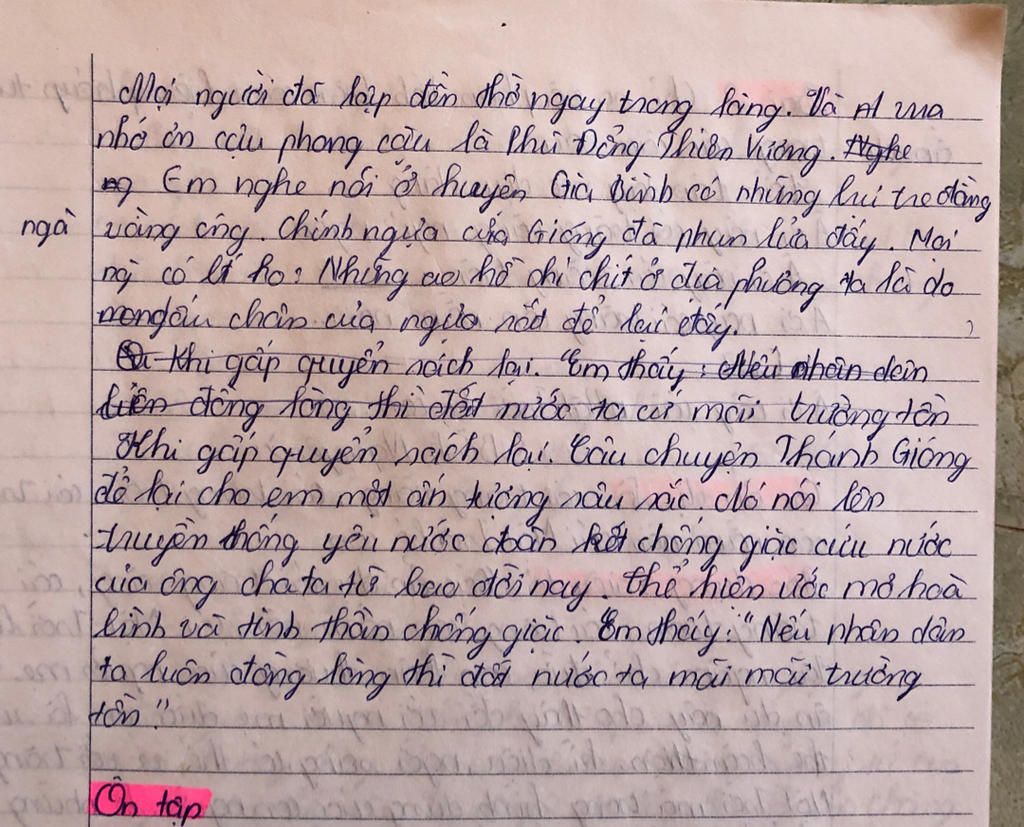 Mọi người đã lập đền thờ ngay trong làng. Và vua
nhớ ơn cậu phong cậu là Phù Đổng Thiên Vương. Nghe
ng Em nghe nói ở huyện Gia Bình có những bụi tre đằng
ngà vàng óng. Chính ngựa của Gióng đã phun lửa đấy. Mọi
ng có kể họ: Những ao hồ chi chít ở địa phương ta là do
dấu chân của ngựa sắt để lại đấy.
Khi gấp quyển sách lại. Em thấy: Nếu nhân dân
luôn đồng lòng thì đất nước ta cứ mãi trường tồn
Khi gấp quyển sách lại. Câu chuyện Thánh Gióng
để lại cho em một ấn tượng sâu sắc. Nó nói lên
truyền thống yêu nước đoàn kết chống giặc cứu nước
của ông cha ta từ bao đời nay. Thể hiện ước mơ hoà
bình và tinh thần chống giặc. Em thấy: "Nếu nhân dân
ta luôn đồng lòng thì đất nước ta mãi mãi trường
tồn."
Ôn tập